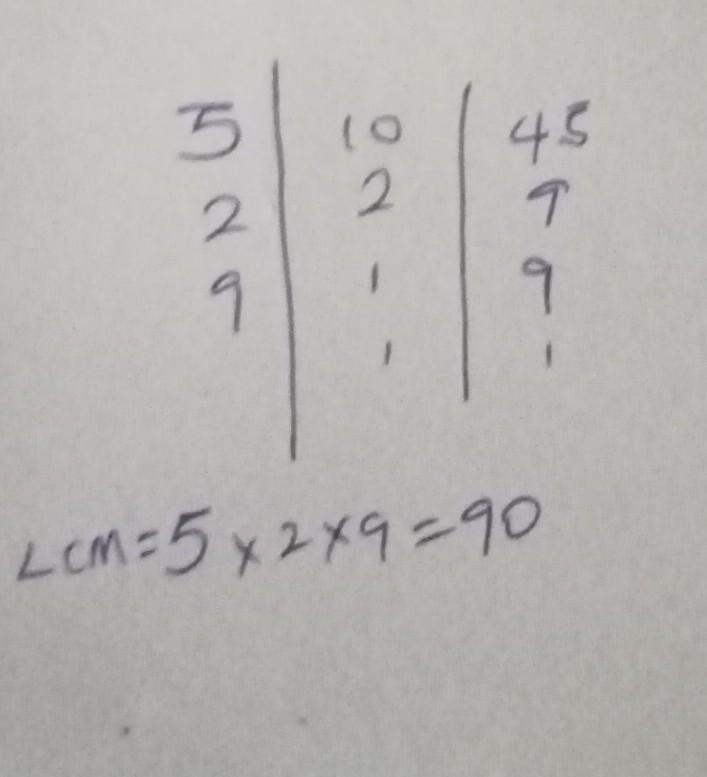 5 | 10 | 45
2 | 2 | 9
9 | 1 | 9
| 1 | 1
LCM=5×2×9=90